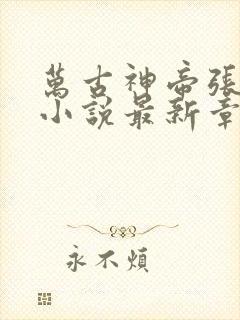 萬古神帝張
小說最新章
永不煩